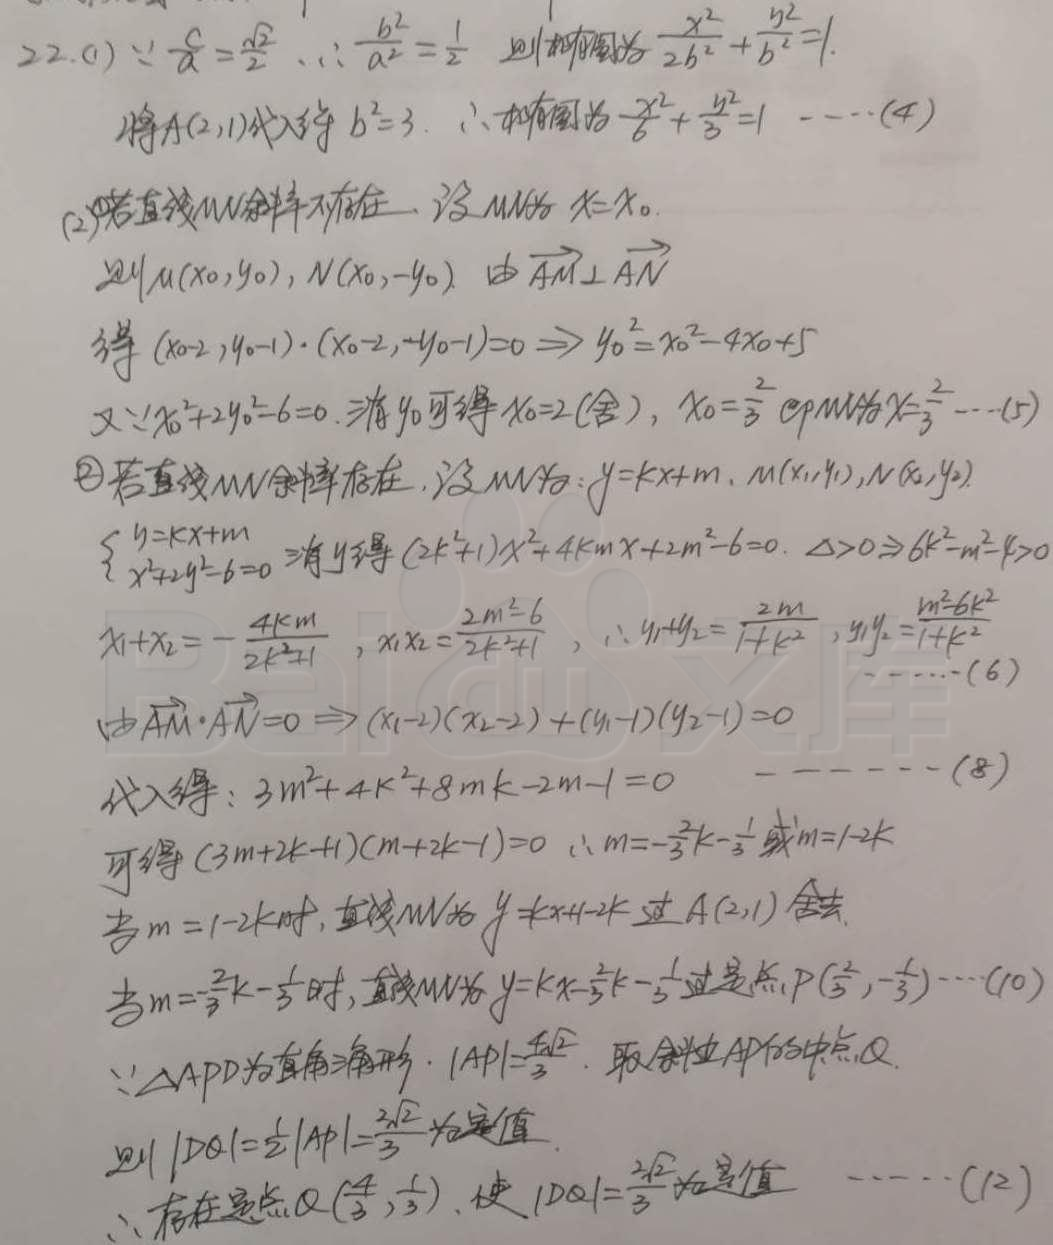 22.(1) ∵ c/a = √2/2 ∴ b²/a² = 1/2 则椭圆为 x²/2b² + y²/b² = 1.
将A(2,1)代入得 b²=3. ∴椭圆为 x²/6 + y²/3 = 1 -----(4)
(2)①若直线MN斜率不存在、设MN为 x=x₀.
则M(x₀,y₀), N(x₀,-y₀). 由 AM⊥AN
得 (x₀-2,y₀-1)·(x₀-2,-y₀-1)=0 ⇒ y₀²=x₀²-4x₀+5
又∵x₀²+2y₀²-6=0.消y₀可得x₀=2(舍), x₀=2/3 即MN为x=2/3 ----(5)
②若直线MN斜率存在.设MN为:y=kx+m、M(x₁,y₁),N(x₂,y₂).
{ y=kx+m
x²+2y²-6=0 消y得(2k²+1)x²+4kmx+2m²-6=0. Δ>0⇒6k²-m²-4>0
x₁+x₂=-4km/2k²+1, x₁x₂=2m²-6/2k²+1, ∴y₁+y₂=2m/1+k², y₁y₂=m²-6k²/1+k²
-----(6)
由AM·AN=0 ⇒(x₁-2)(x₂-2)+(y₁-1)(y₂-1)=0
代入得: 3m²+4k²+8mk-2m-1=0 -------(8)
可得(3m+2k+1)(m+2k-1)=0 ∴m=-2/3k-1/3或m=1-2k
当m=1-2k时,直线MN为y=kx+1-2k过A(2,1)舍去.
当m=-2/3k-1/3时,直线MN为y=kx-2/3k-1/3过定点P(2/3,-1/3)----(10)
∵△APD为直角三角形.|AP|=4√2/3.取斜边AP的中点Q.
则|DQ|=1/2|AP|=2√2/3为定值.
∴存在定点Q(4/3,1/3)、使|DQ|=2√2/3为定值 ------(12)
Bai 文库